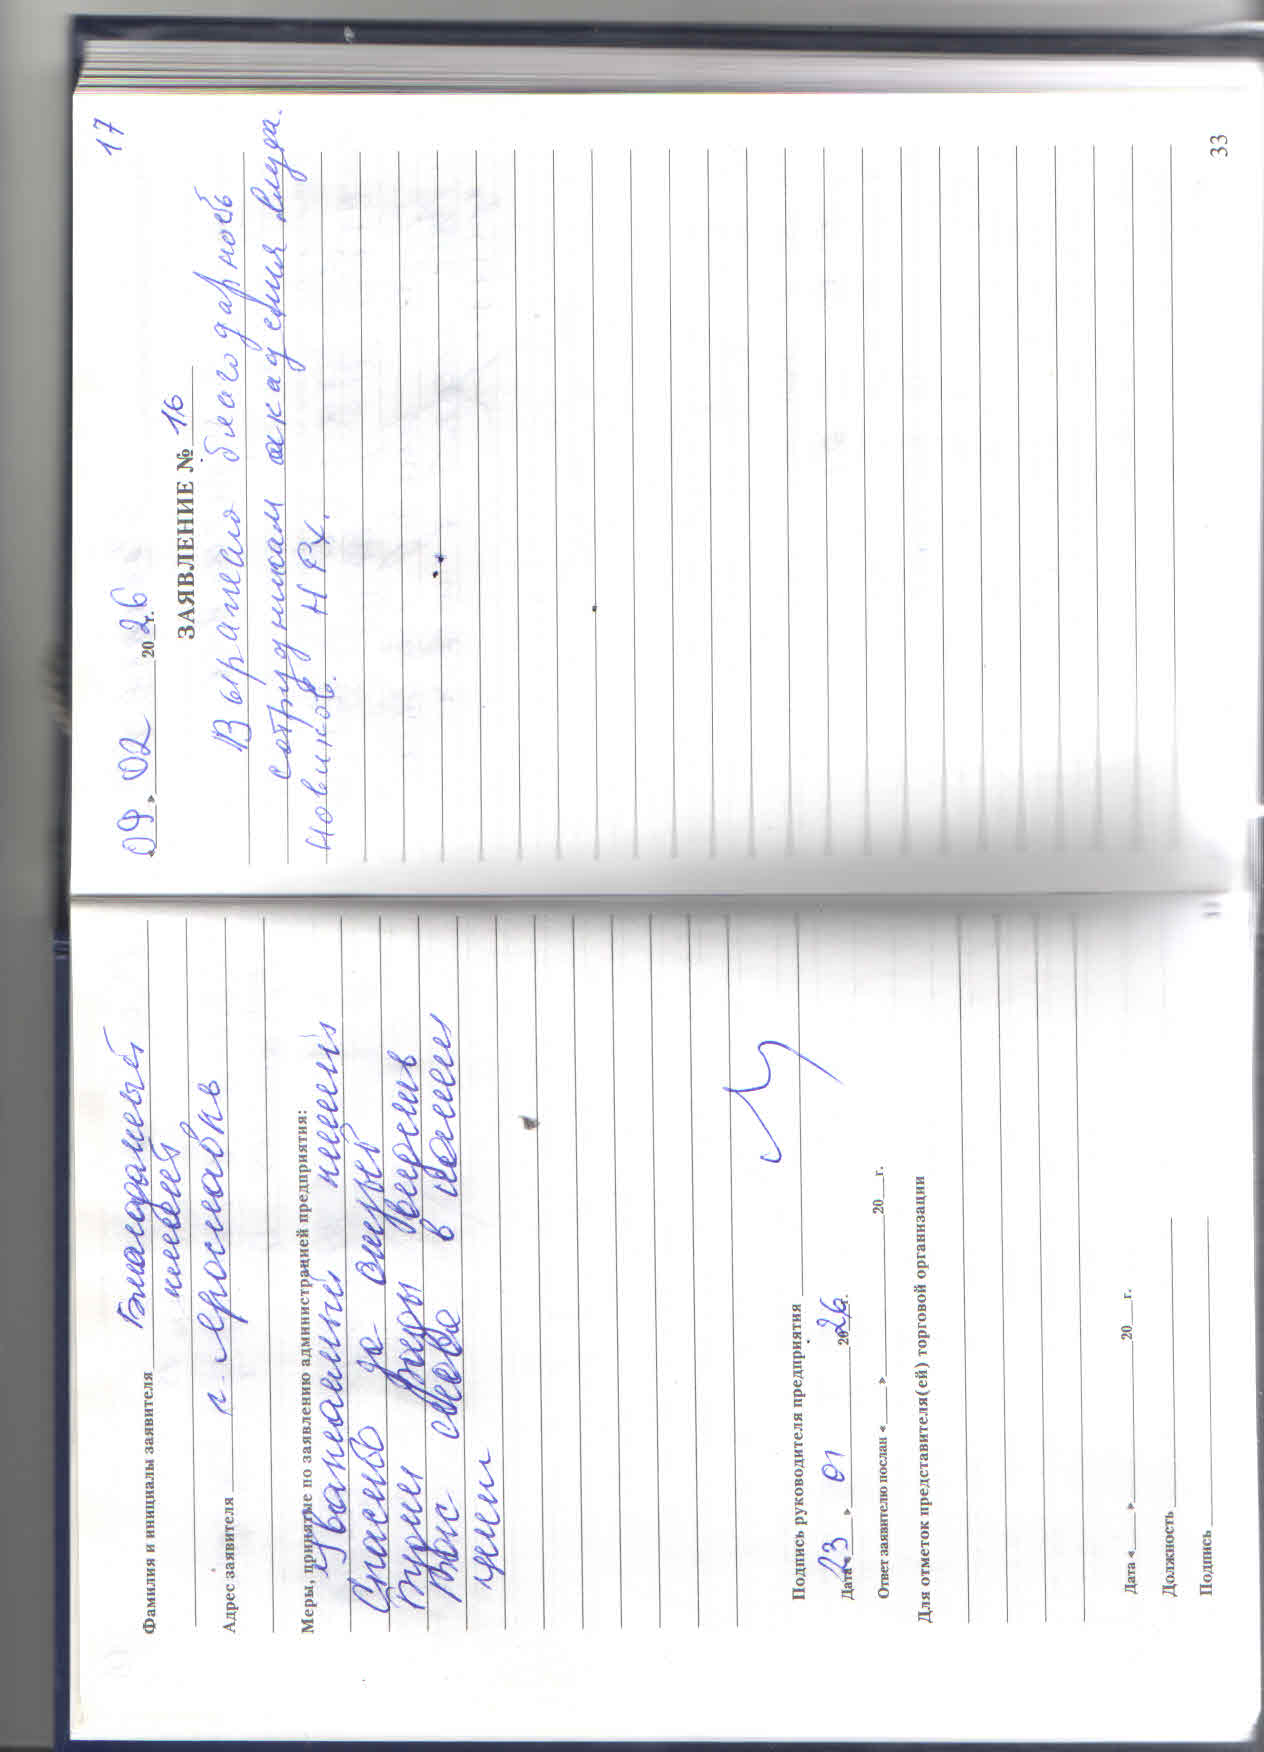 Фамилия и инициалы заявителя Благодарный
клиент
Адрес заявителя г. Ярославль
Меры, принятые по заявлению администрацией предприятия:
Уважаемый клиент
Спасибо за отзыв
Будем рады видеть
Вас снова в нашем
Подпись руководителя предприятия
Дата «23» 01 2026г.
Ответ заявителю послан «___»___20__г.
Для отметок представителя(ей) торговой организации
Дата «___»___20__г.
Должность
Подпись
17
«09» 02 2026г.
ЗАЯВЛЕНИЕ № 16
Выражаю благодарность
сотрудникам академия
Новиков. Н
33